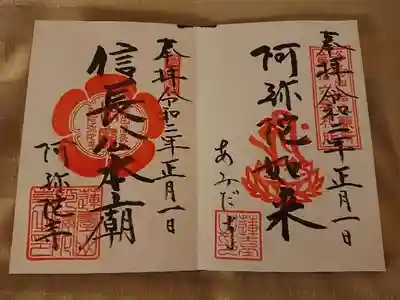 奉拝令和二年正月一日
阿弥陀如来
あみだ寺
奉拝令和二年正月一日
信長公本廟
阿弥陀寺